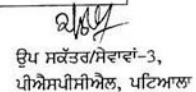 ਉਪ ਸਕੱਤਰ/ਸੇਵਾਵਾਂ-3,
ਪੀਐਸਪੀਸੀਐਲ, ਪਟਿਆਲਾ